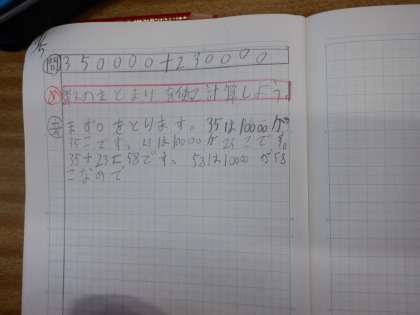 問 350000+230000
め 数のまとまりを使って計算しよう。
考 まず0をとります。35は10000が
35こです。23は10000が23こです。
35+23=58です。58は10000が58
こなので